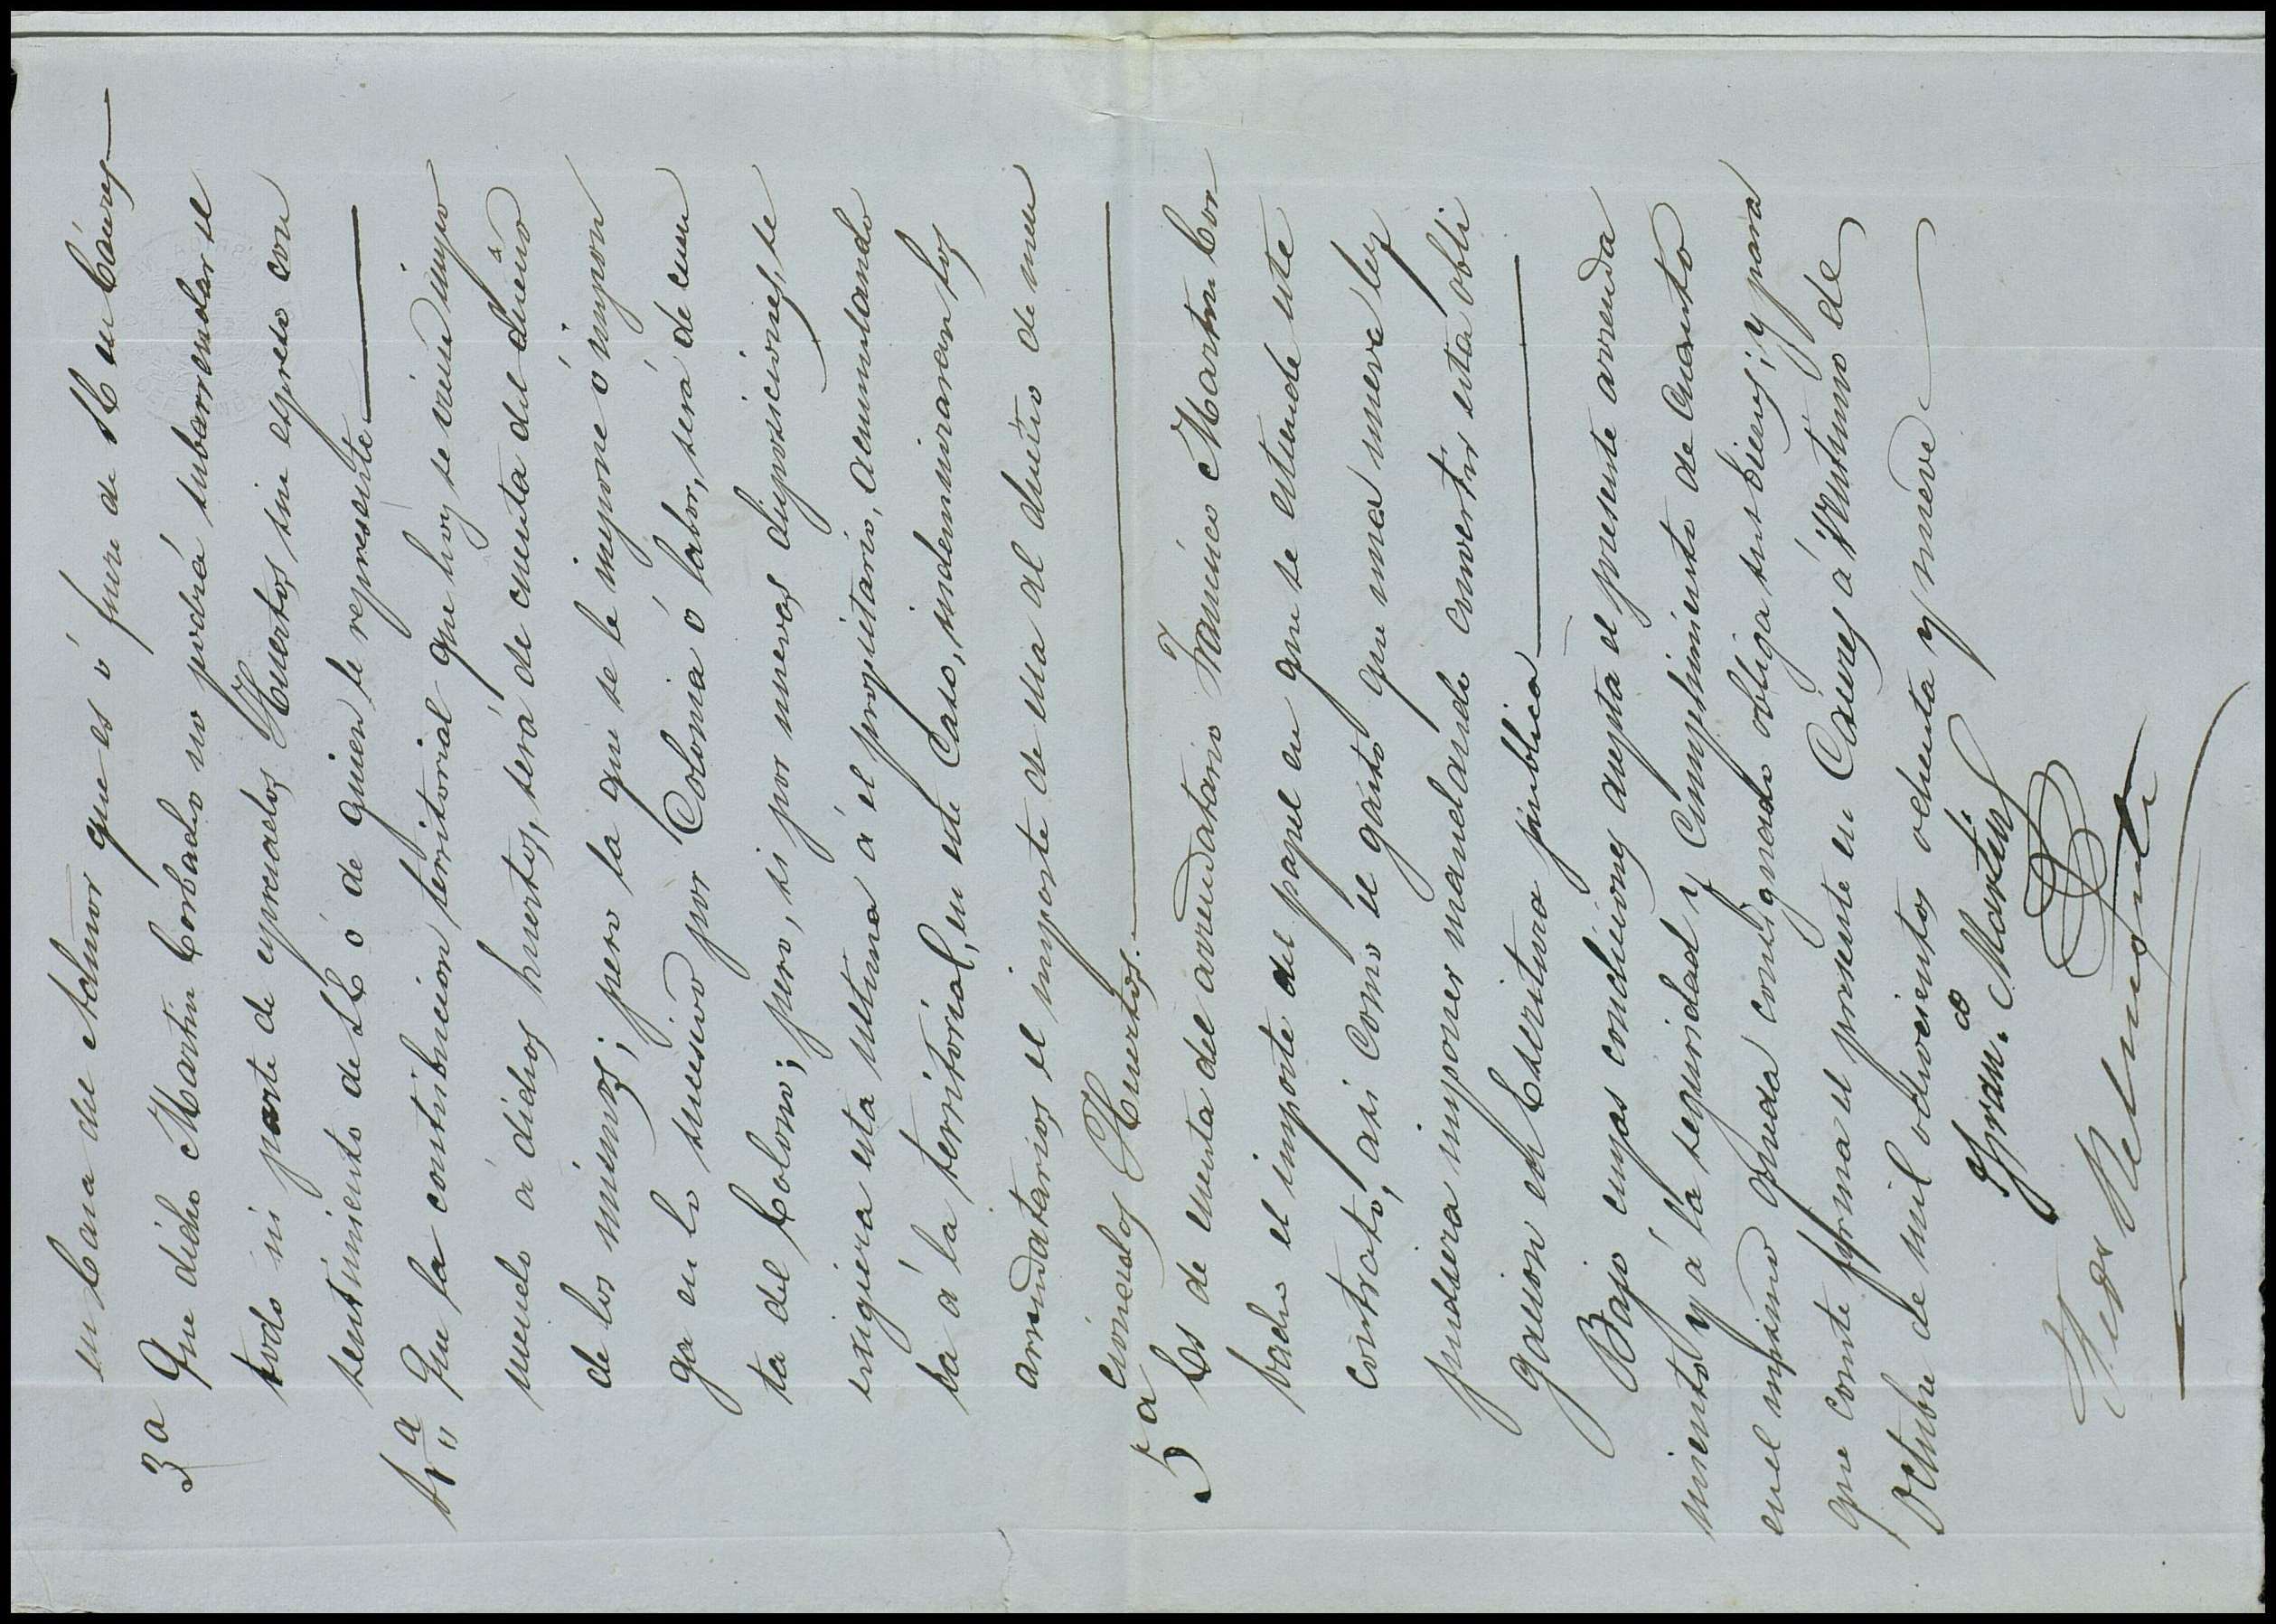 en Casa del Admor que es ó fuere de SE en Cáceres
3ª Que dicho Martin Corbacho no podrá subarrendar el
todo ni parte de espresados Huertos sin espreso con
sentimiento de SE ó de quien le represente
4ª Que la contribucion territorial que hoy se viene impo
niendo á dichos huertos, será de cuenta del dueño
de los mismos; pero la que se le impone ó impon
ga en lo sucesivo por Colonia ó labor, será de cuen
ta del Colono; pero, si por nuevas disposiciones, se
exigiera esta ultima á el propietario, acumulando
la á la territorial, en este Caso, indemnizaran los
arrendatarios el importe de ella al dueño de men
cionados Huertos.
5ª Es de cuenta del arrendatario Francisco Martin Cor
bacho el importe del papel en que se estiende este
contrato, asi como el gasto que una nueva ley
pudiera imponer mandando convertir esta obli
gacion en Escritura pública
Bajo cuyas condiciones acepta el presente arrenda
miento y á la seguridad y Cumplimiento de Cuanto
en el mismo queda consignado obliga sus bienes; y para
que conste firma el presente en Cáceres á Veintiuno de
Octubre de mil ochocientos ochenta y nueve
Fran.co Martin